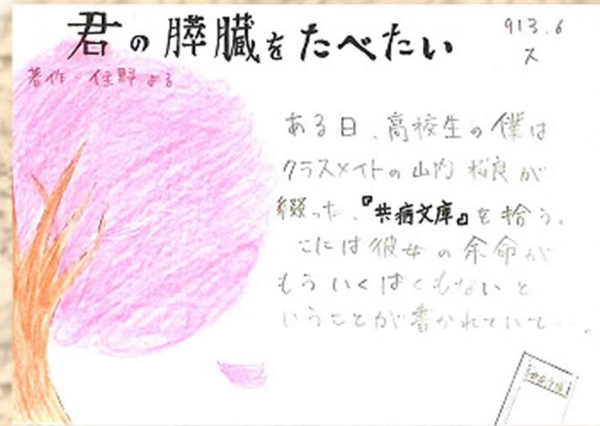 君の膵臓をたべたい
913.6
ス
著作・住野よる
ある日、高校生の僕は
クラスメイトの山内桜良が
綴った、『共病文庫』を拾う。
こには彼女の余命が
もういくばくもないと
いうことが書かれていて…。
共病文庫